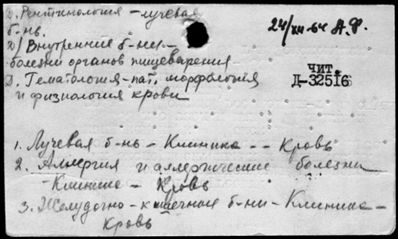 2. Рентгенология - лучевая
б-нь.
2) Внутренние б-ни -
болезни органов пищеварения
2. Гематология - пат. морфология
и физиология крови
24/XII-64 А.Ф.
ЧИТ.
Д-32516
1. Лучевая б-нь - Клиника -- Кровь
2. Аллергия и аллергические болезни
- Клиника - Кровь
3. Желудочно-кишечные б-ни - Клиника -
Кровь